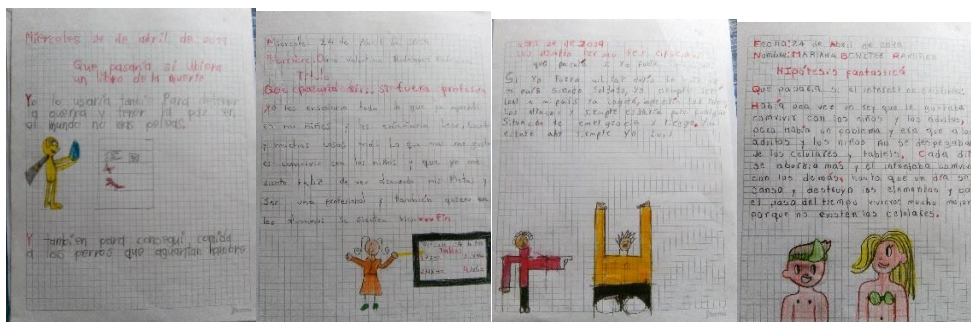 Miércoles 24 de abril de 2019
Que pasaría si ubiera
un libro de la guerra
Yo lo usaría para detener
la guerra y tener la paz en
el mundo no mas peleas.
Y tambien para consegui comida
a los perros que aguantan hambre
Miercoles 24 de Abril de 2019
Nombre: Dana Valentina
Titulo
Que pasaria si... si fuera profesora
yo les enseñaria todo lo que yo aprendi
es mis niños y les enseñaria leer,
y muchas cosas mas. Lo que mas me gusta
es compartir con los niños y que yo me
sienta feliz de ver
ser una profesional y también quiero que
los alumnos se sientan bien Fin
24 de 2019
que pasaria si yo fuera
Si yo fuera militar
mi pais siendo soldado, yo siempre seria
leal a mi pais
los ataques y siempre estaria para cualquier
situacion de emergencia y riesgo. Yo
Fecha: 24 de Abril de 2019
Nombre: MARIANA
Hipótesis fantastica
Que pasaria si el internet no existiera.
Había una vez un rey que le gustaba
convivir con los niños y los adultos,
pero había un problema y era que a los
adultos y los niños no se despegaban
de los celulares y tablets. Cada día
se aburria mas y el intentaba convivir
con los demás, hasta que un día se
canso y destruyo los elementos y con
el paso del tiempo vivieron mucho mejor
porque no existen los celulares.